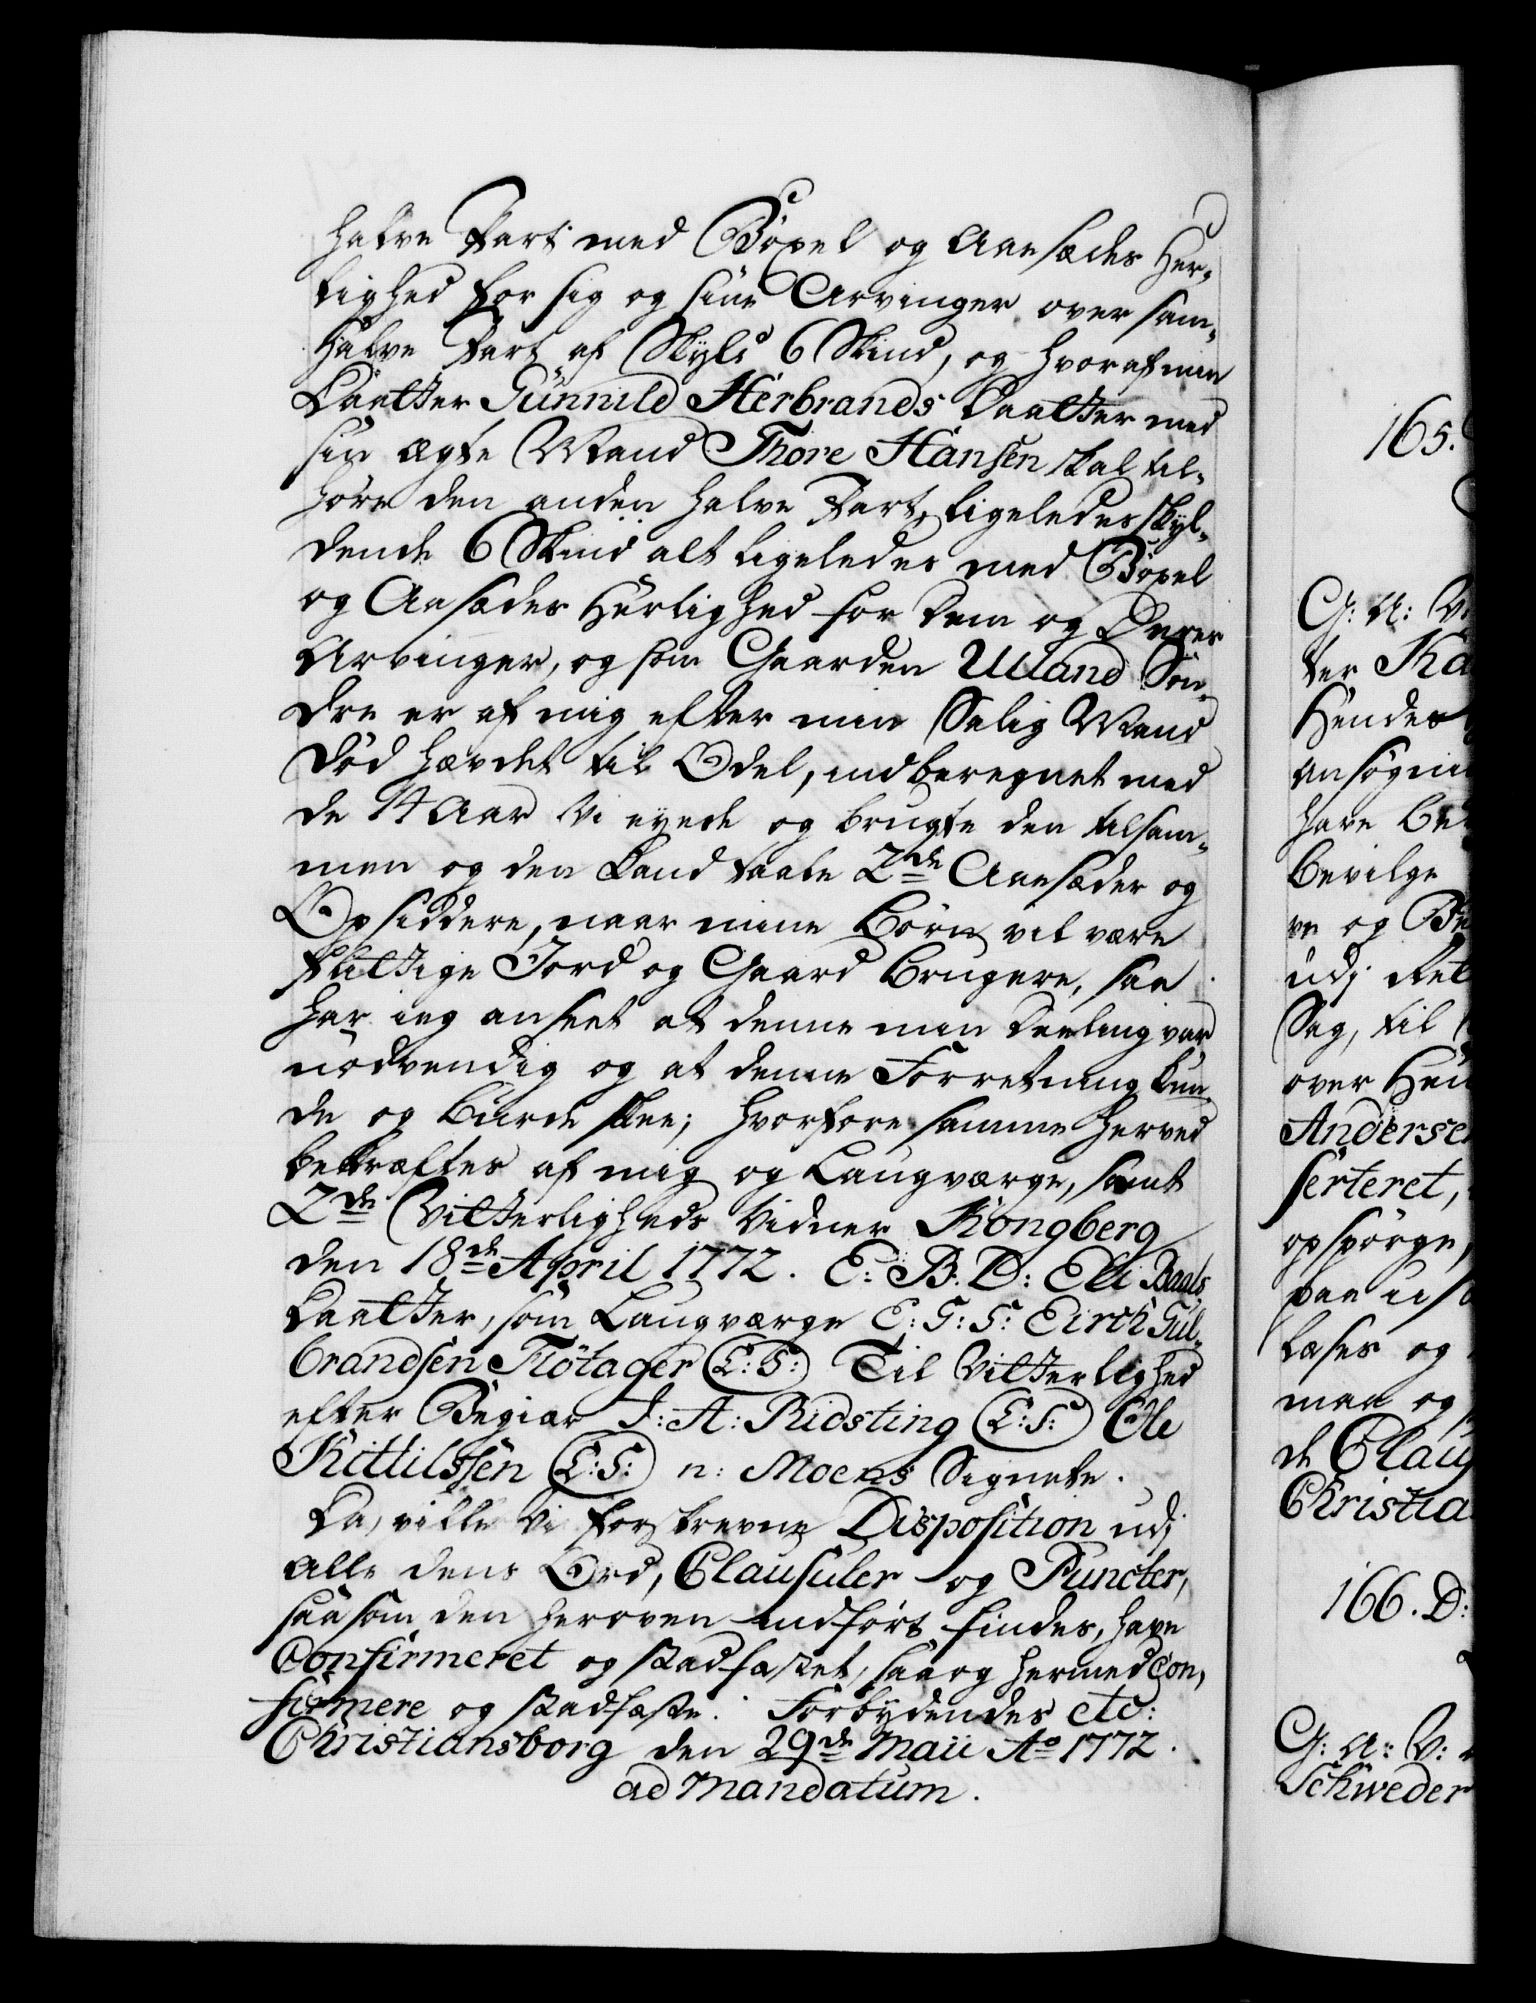 halve Part med Böxel og Aaesædes Her-
lighed for sig og sine Arvinger over sam-
halve Part af Skyld 6 Skind, og hvoraf min
Daatter Gunnild Herbrands Daatter med
sin ægte Mand Thore Hansen skal til-
høre den anden halve Part, ligeledes skyl-
dende 6 Skind alt ligeledes med Böxel
og Aasædes Herlighed for dem og Deres
Arvinger, og som Gaarden Ulland Søn-
dre er af mig efter min Salig Mand
Død hævdet til Odel, indberegnet med
de 14 Aar vi eyede og brugte den tilsam-
men og den kand taale 2de Aaesæder og
Opsiddere, naar mine Børn vil være
flittige Jord og Gaard Brugere, saa
har ieg anseet at denne min Deeling var
nødvendig og at denne Forretning kun-
de og burde skee; hvorfore samme herved
bekræftes af mig og Laugværge, samt
2de Vitterligheds Vidner Kongberg
den 18de April 1772. E: B: D: Eli Baals
Daatter, som Laugværge E: G: S: Eirch Gul-
brandsen Flötager (L:S:) Til Vitterlighed
efter Begiær J: A: Ridsting (L:S:) Ole
Kittilssen (L:S:) n: Moens Signete.
Da, ville Vi forskrevne Disposition udj
alle dens Ord, Clausuler og Puncter,
saasom den heroven indført findes, have
Confirmeret og stadfæstet, saa og hermed Con-
firmere og stadfæste. Forbydendes etc:
Christiansborg den 29de Maii Ao 1772.
ad Mandatum.
165.
G: A: V:
ter Ka
Hendes
ansøgni
have be
bevilge
ve og Be
udj Ret
Sag, til
over Hen
Anderse
serteret,
opspørge,
paa
læses og
maa og
de Claug
Christia
166. D:
G: A: V:
Schweder